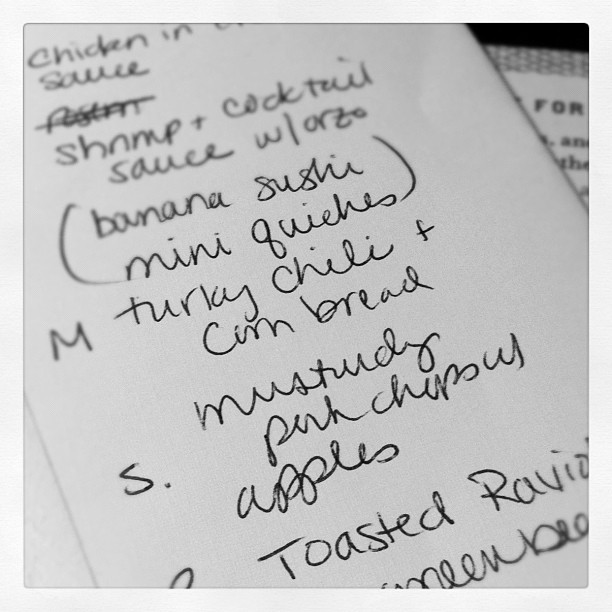 Chicken in
sauce
shrimp + cocktail
sauce w/orzo
(banana sushi
mini quiches)
M turkey chili +
corn bread
mustardy
pork chops w/
S. apples
Toasted Ravio
green bea
FOR
and
the